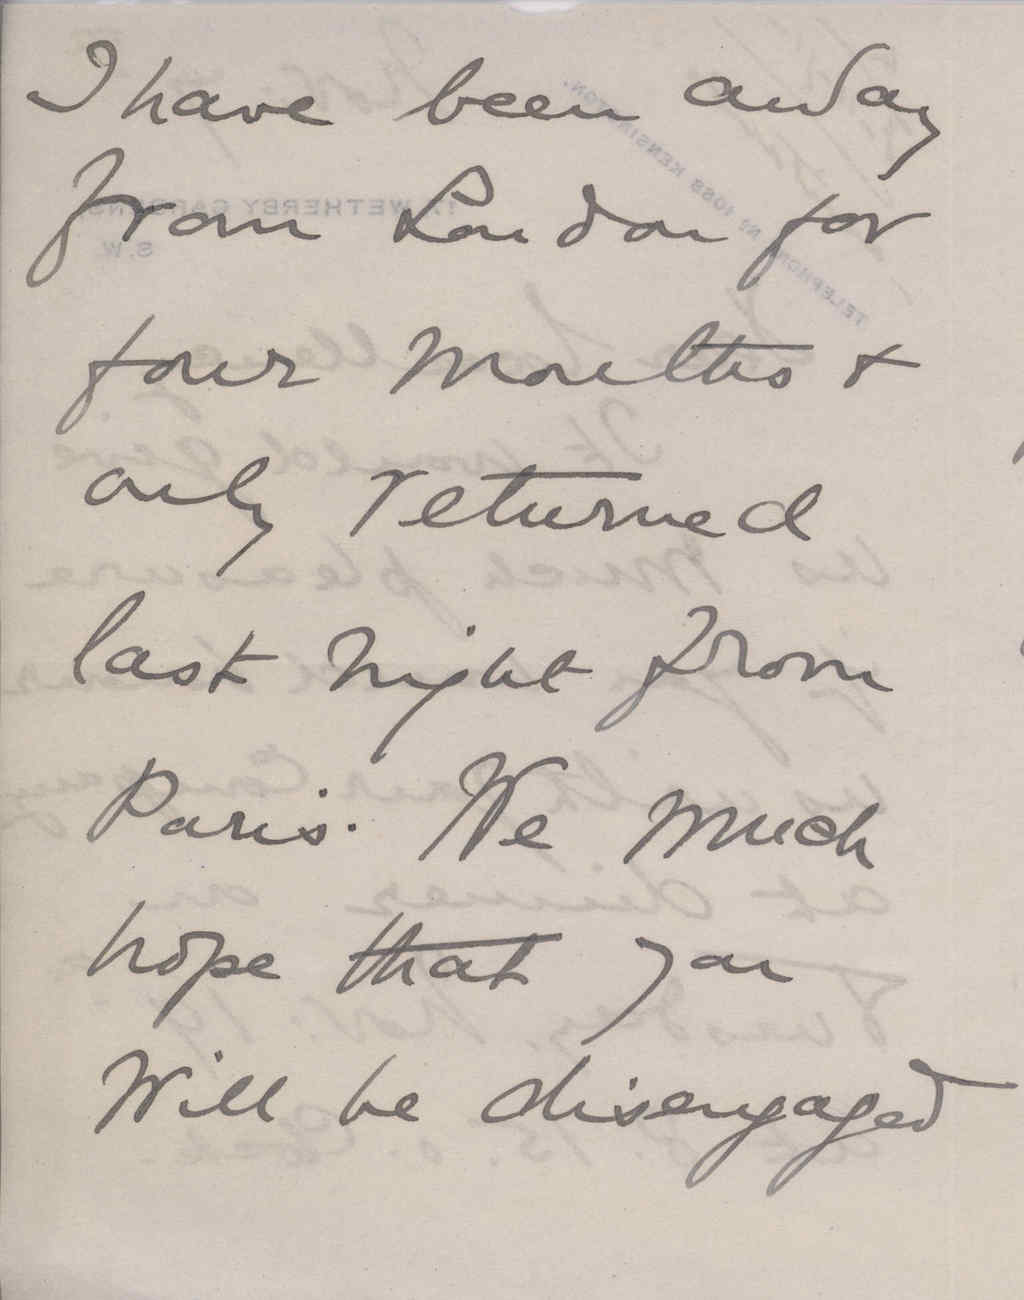 I have been away
from London for
four months +
only returned
last night from
Paris. We much
hope that you
will be disengaged